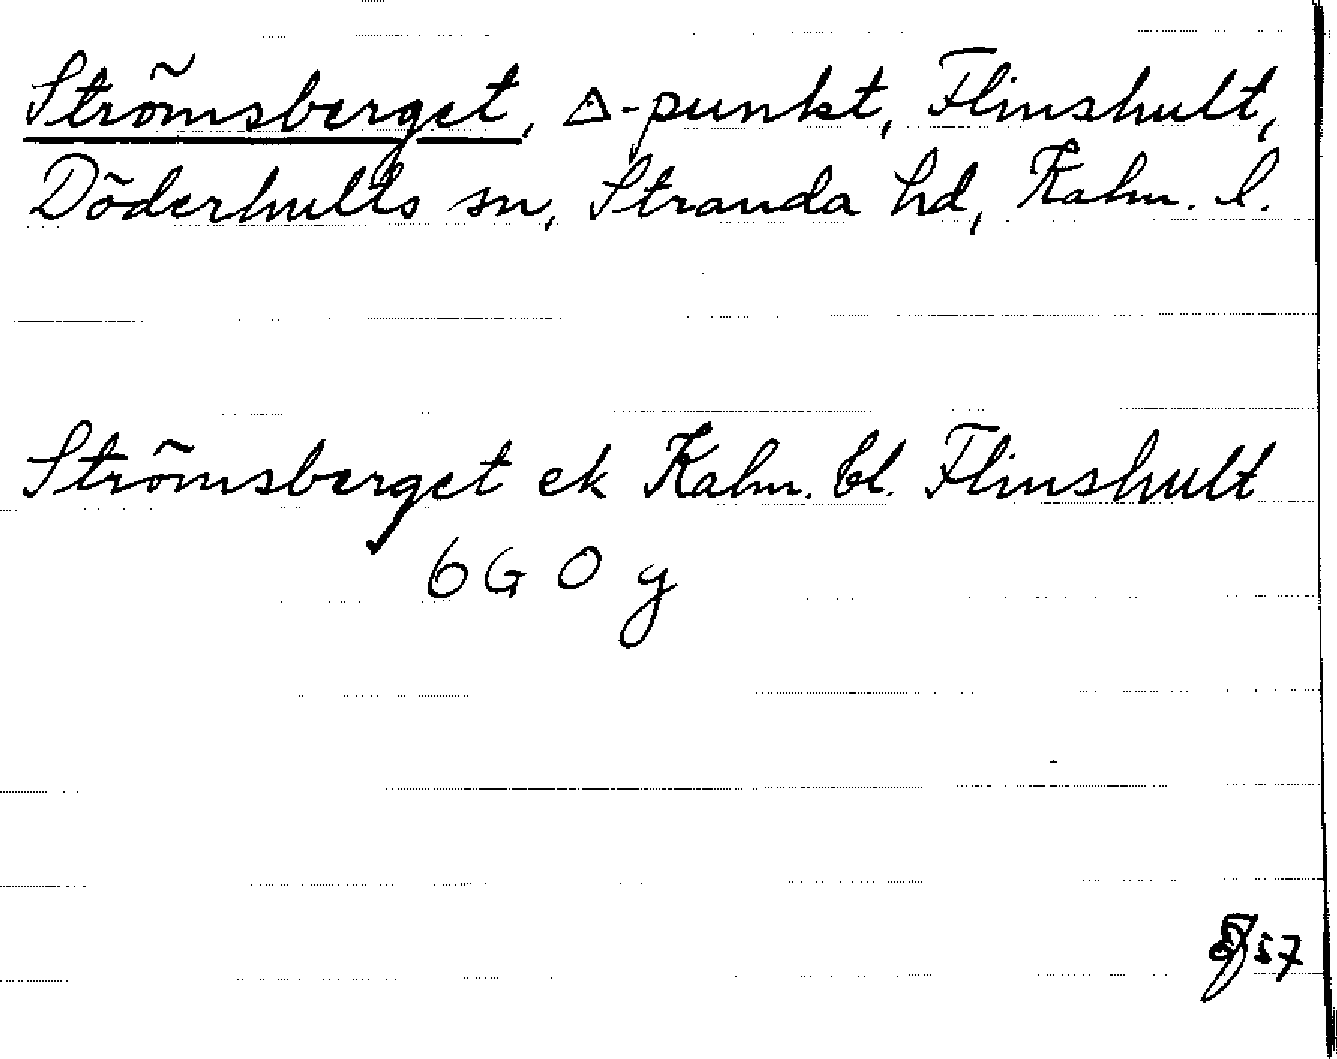 Strömsberget, △-punkt, Flinshult,
Döderhults sn, Stranda hd, Kalm. l.
Strömsberget ek Kalm. bl. Flinshult
6G 0 y
57